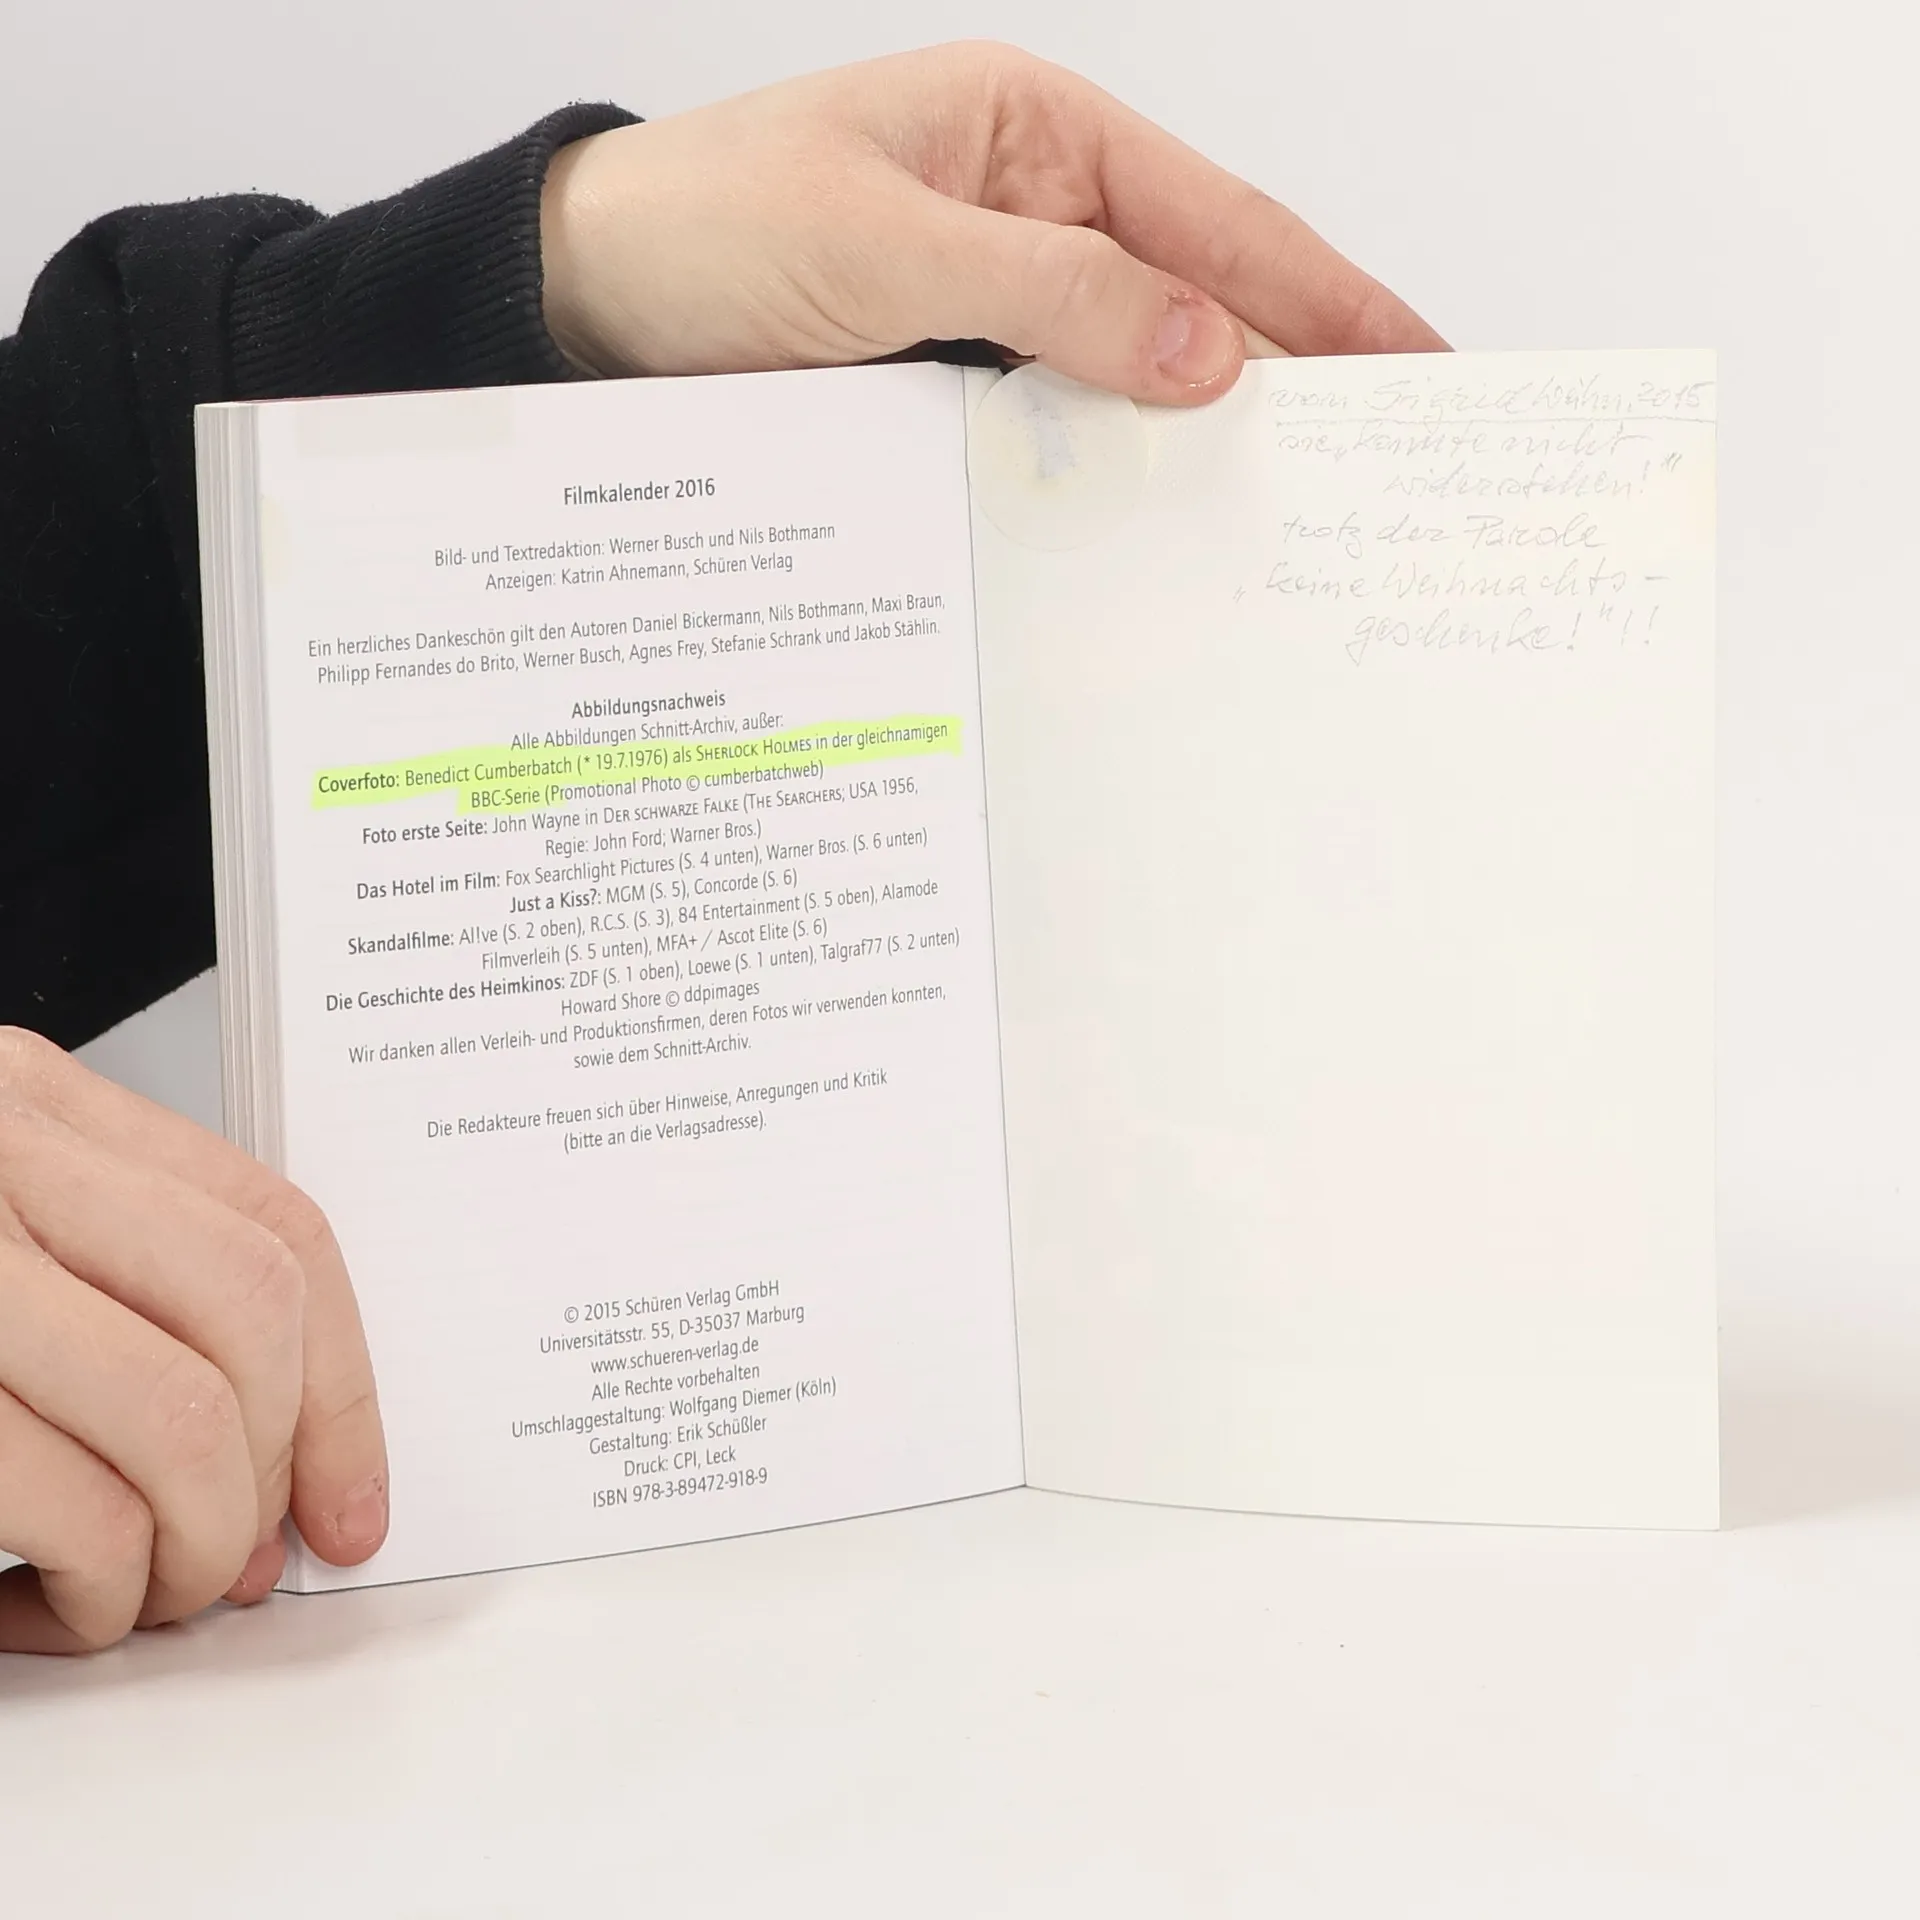 Filmkalender 2016
Bild- und Textredaktion: Werner Busch und Nils Bothmann
Anzeigen: Katrin Ahnemann, Schüren Verlag
Ein herzliches Dankeschön gilt den Autoren Daniel Bickermann, Nils Bothmann, Maxi Braun,
Philipp Fernandes do Brito, Werner Busch, Agnes Frey, Stefanie Schrank und Jakob Stählin.
Abbildungsnachweis
Alle Abbildungen Schnitt-Archiv, außer:
Coverfoto: Benedict Cumberbatch (* 19.7.1976) als SHERLOCK HOLMES in der gleichnamigen
BBC-Serie (Promotional Photo © cumberbatchweb)
Foto erste Seite: John Wayne in DER SCHWARZE FALKE (THE SEARCHERS; USA 1956,
Regie: John Ford; Warner Bros.)
Das Hotel im Film: Fox Searchlight Pictures (S. 4 unten), Warner Bros. (S. 6 unten)
Just a Kiss?: MGM (S. 5), Concorde (S. 6)
Skandalfilme: Al!ve (S. 2 oben), R.C.S. (S. 3), 84 Entertainment (S. 5 oben), Alamode
Filmverleih (S. 5 unten), MFA+ / Ascot Elite (S. 6)
Die Geschichte des Heimkinos: ZDF (S. 1 oben), Loewe (S. 1 unten), Talgraf77 (S. 2 unten)
Howard Shore © ddpimages
Wir danken allen Verleih- und Produktionsfirmen, deren Fotos wir verwenden konnten,
sowie dem Schnitt-Archiv.
Die Redakteure freuen sich über Hinweise, Anregungen und Kritik
(bitte an die Verlagsadresse).
© 2015 Schüren Verlag GmbH
Universitätsstr. 55, D-35037 Marburg
www.schueren-verlag.de
Alle Rechte vorbehalten
Umschlaggestaltung: Wolfgang Diemer (Köln)
Gestaltung: Erik Schüßler
Druck: CPI, Leck
ISBN 978-3-89472-918-9
von Sigrid 2015
sie „konnte nicht
widerstehen!"
trotz der Parole
„keine Weihnachts-
geschenke!"!!